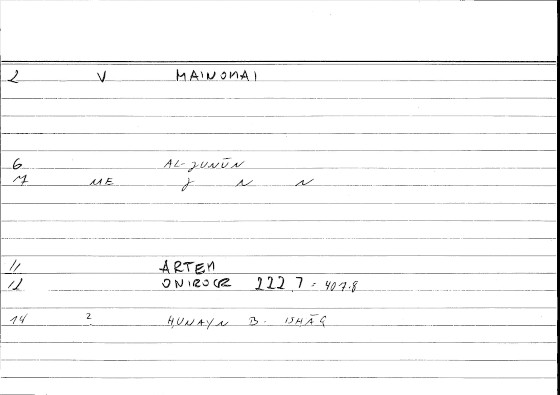 2 V MAINOMAI
6 AL-JUNŪN
7 ME J N N
11 ARTEM
12 ONIROCR 222.7 = 407.8
14 2 HUNAYN B. ISHĀQ